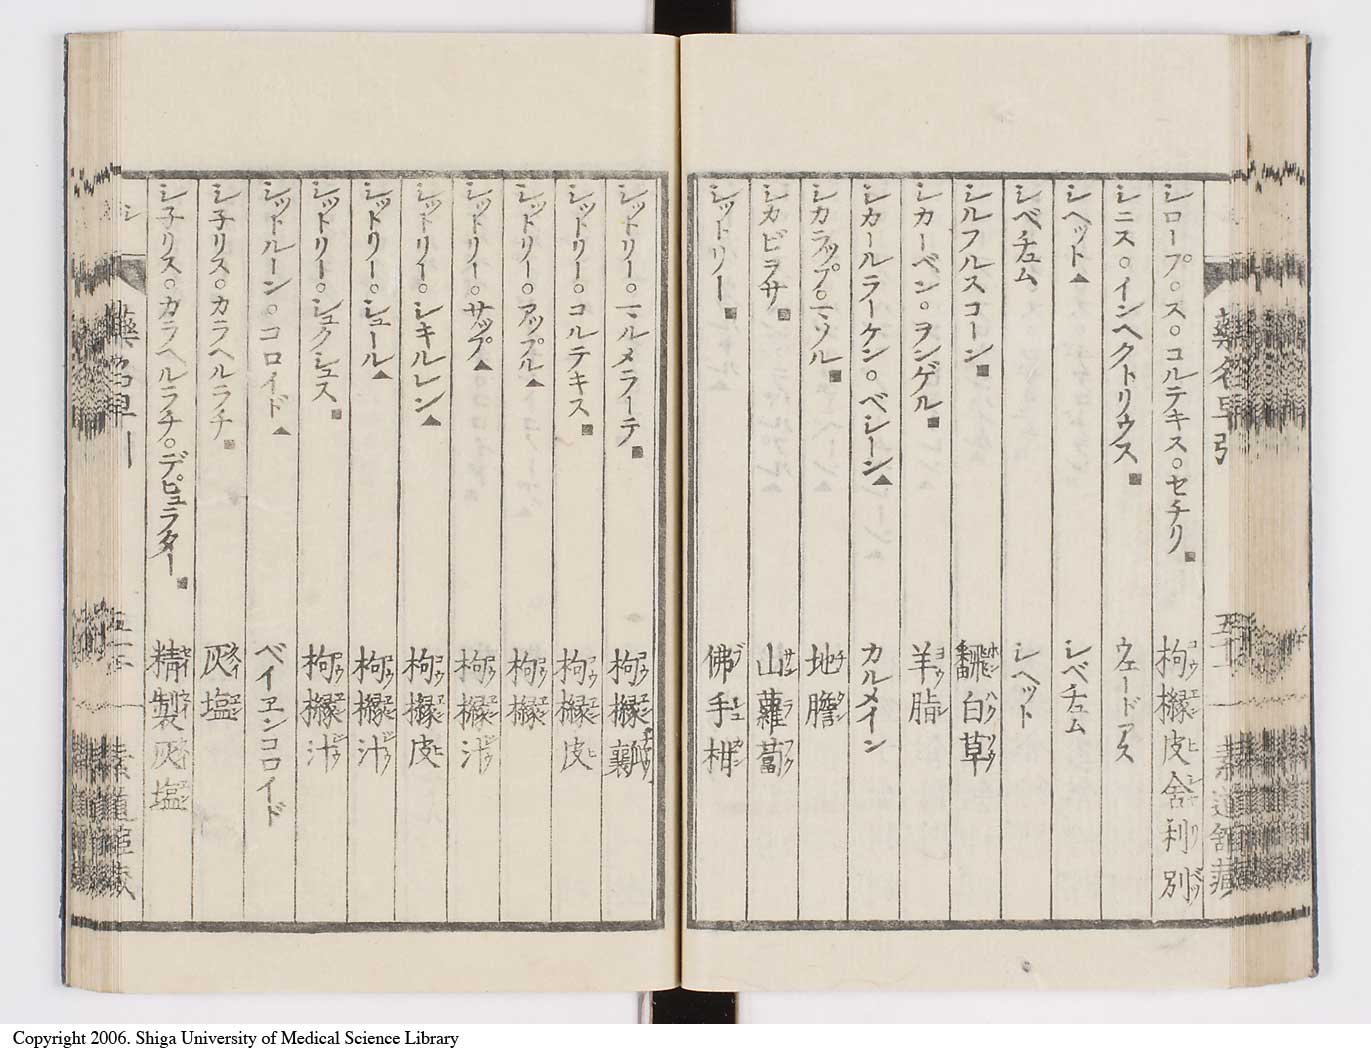 藥名早引
五十一
素道舘藏
シロープ。ス。コルテキス。セチリ 枸櫞皮舍利別
シニス。インヘクトリウス ウェードアス
シヘット▲ シヘット
シベチュム シベチュム
シルフルスコーン 飜白草
シカーベン。ヲンゲル 羊脂
シカールラーケン。ベシーン▲ カルメイン
シカラップ。マソル 地膽
シカビラサ 山蘿蔔
シットリー 佛手柑
シットリー。マルメラーテ 枸櫞蘘
シットリー。コルテキス 枸櫞皮
シットリー。アップル▲ 枸櫞
シットリー。サップ▲ 枸櫞汁
シットリー。シキルレン▲ 枸櫞皮
シットリー。シュール▲ 枸櫞汁
シットリー。シュクシュス 枸櫞汁
シットルーン。コロイド▲ ベイヱンコロイド
シ子リス。カラヘルラチ 灰塩
シ子リス。カラヘルラチ。デピュラター 精製灰塩
シ
素道舘藏
Copyright 2006. Shiga University of Medical Science Library